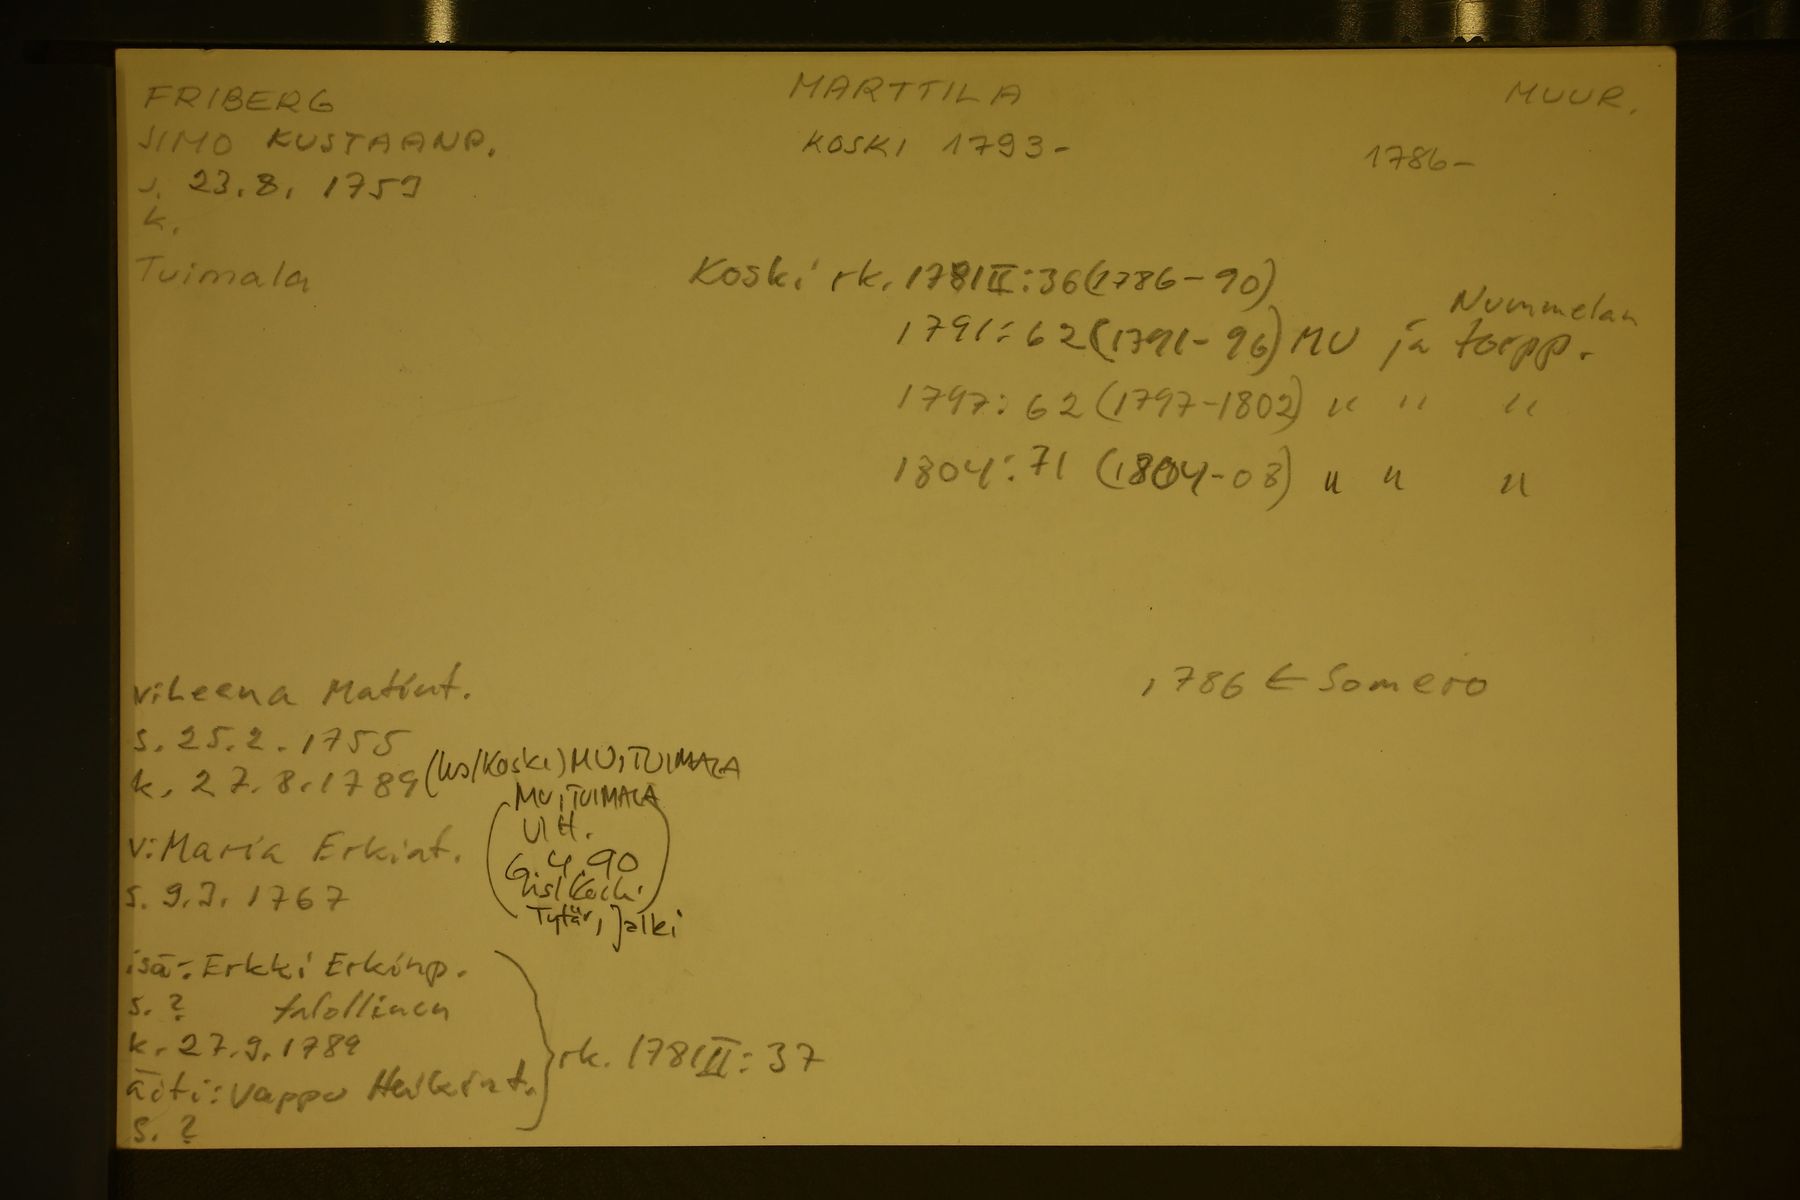 FRIBERG MARTTILA MUUR.
SIMO KUSTAANP. KOSKI 1793- 1786-
s. 23.8. 1759
k.
Tuimala
Koski rk. 1781II:36(1786-90)
1791:62(1791-96) MU ja Nummelan torpp.
1797:62(1797-1802) " " "
1804:71 (1804-08) " " "
v:Leena Matint. 1786 ← Somero
s. 25.2. 1755
k. 27.8.1789 (hs/Koski) MU, TUIMALA
(MU, TUIMALA
VIH.
6.4.90
hs/Koski
Tytär, jalki)
v:Maria Erkint.
s. 9.3. 1767
isä: Erkki Erkinp.
s. ? talollinen
k. 27.9.1789
äiti: Vappu Heikint.
s. ?
rk. 1781II:37